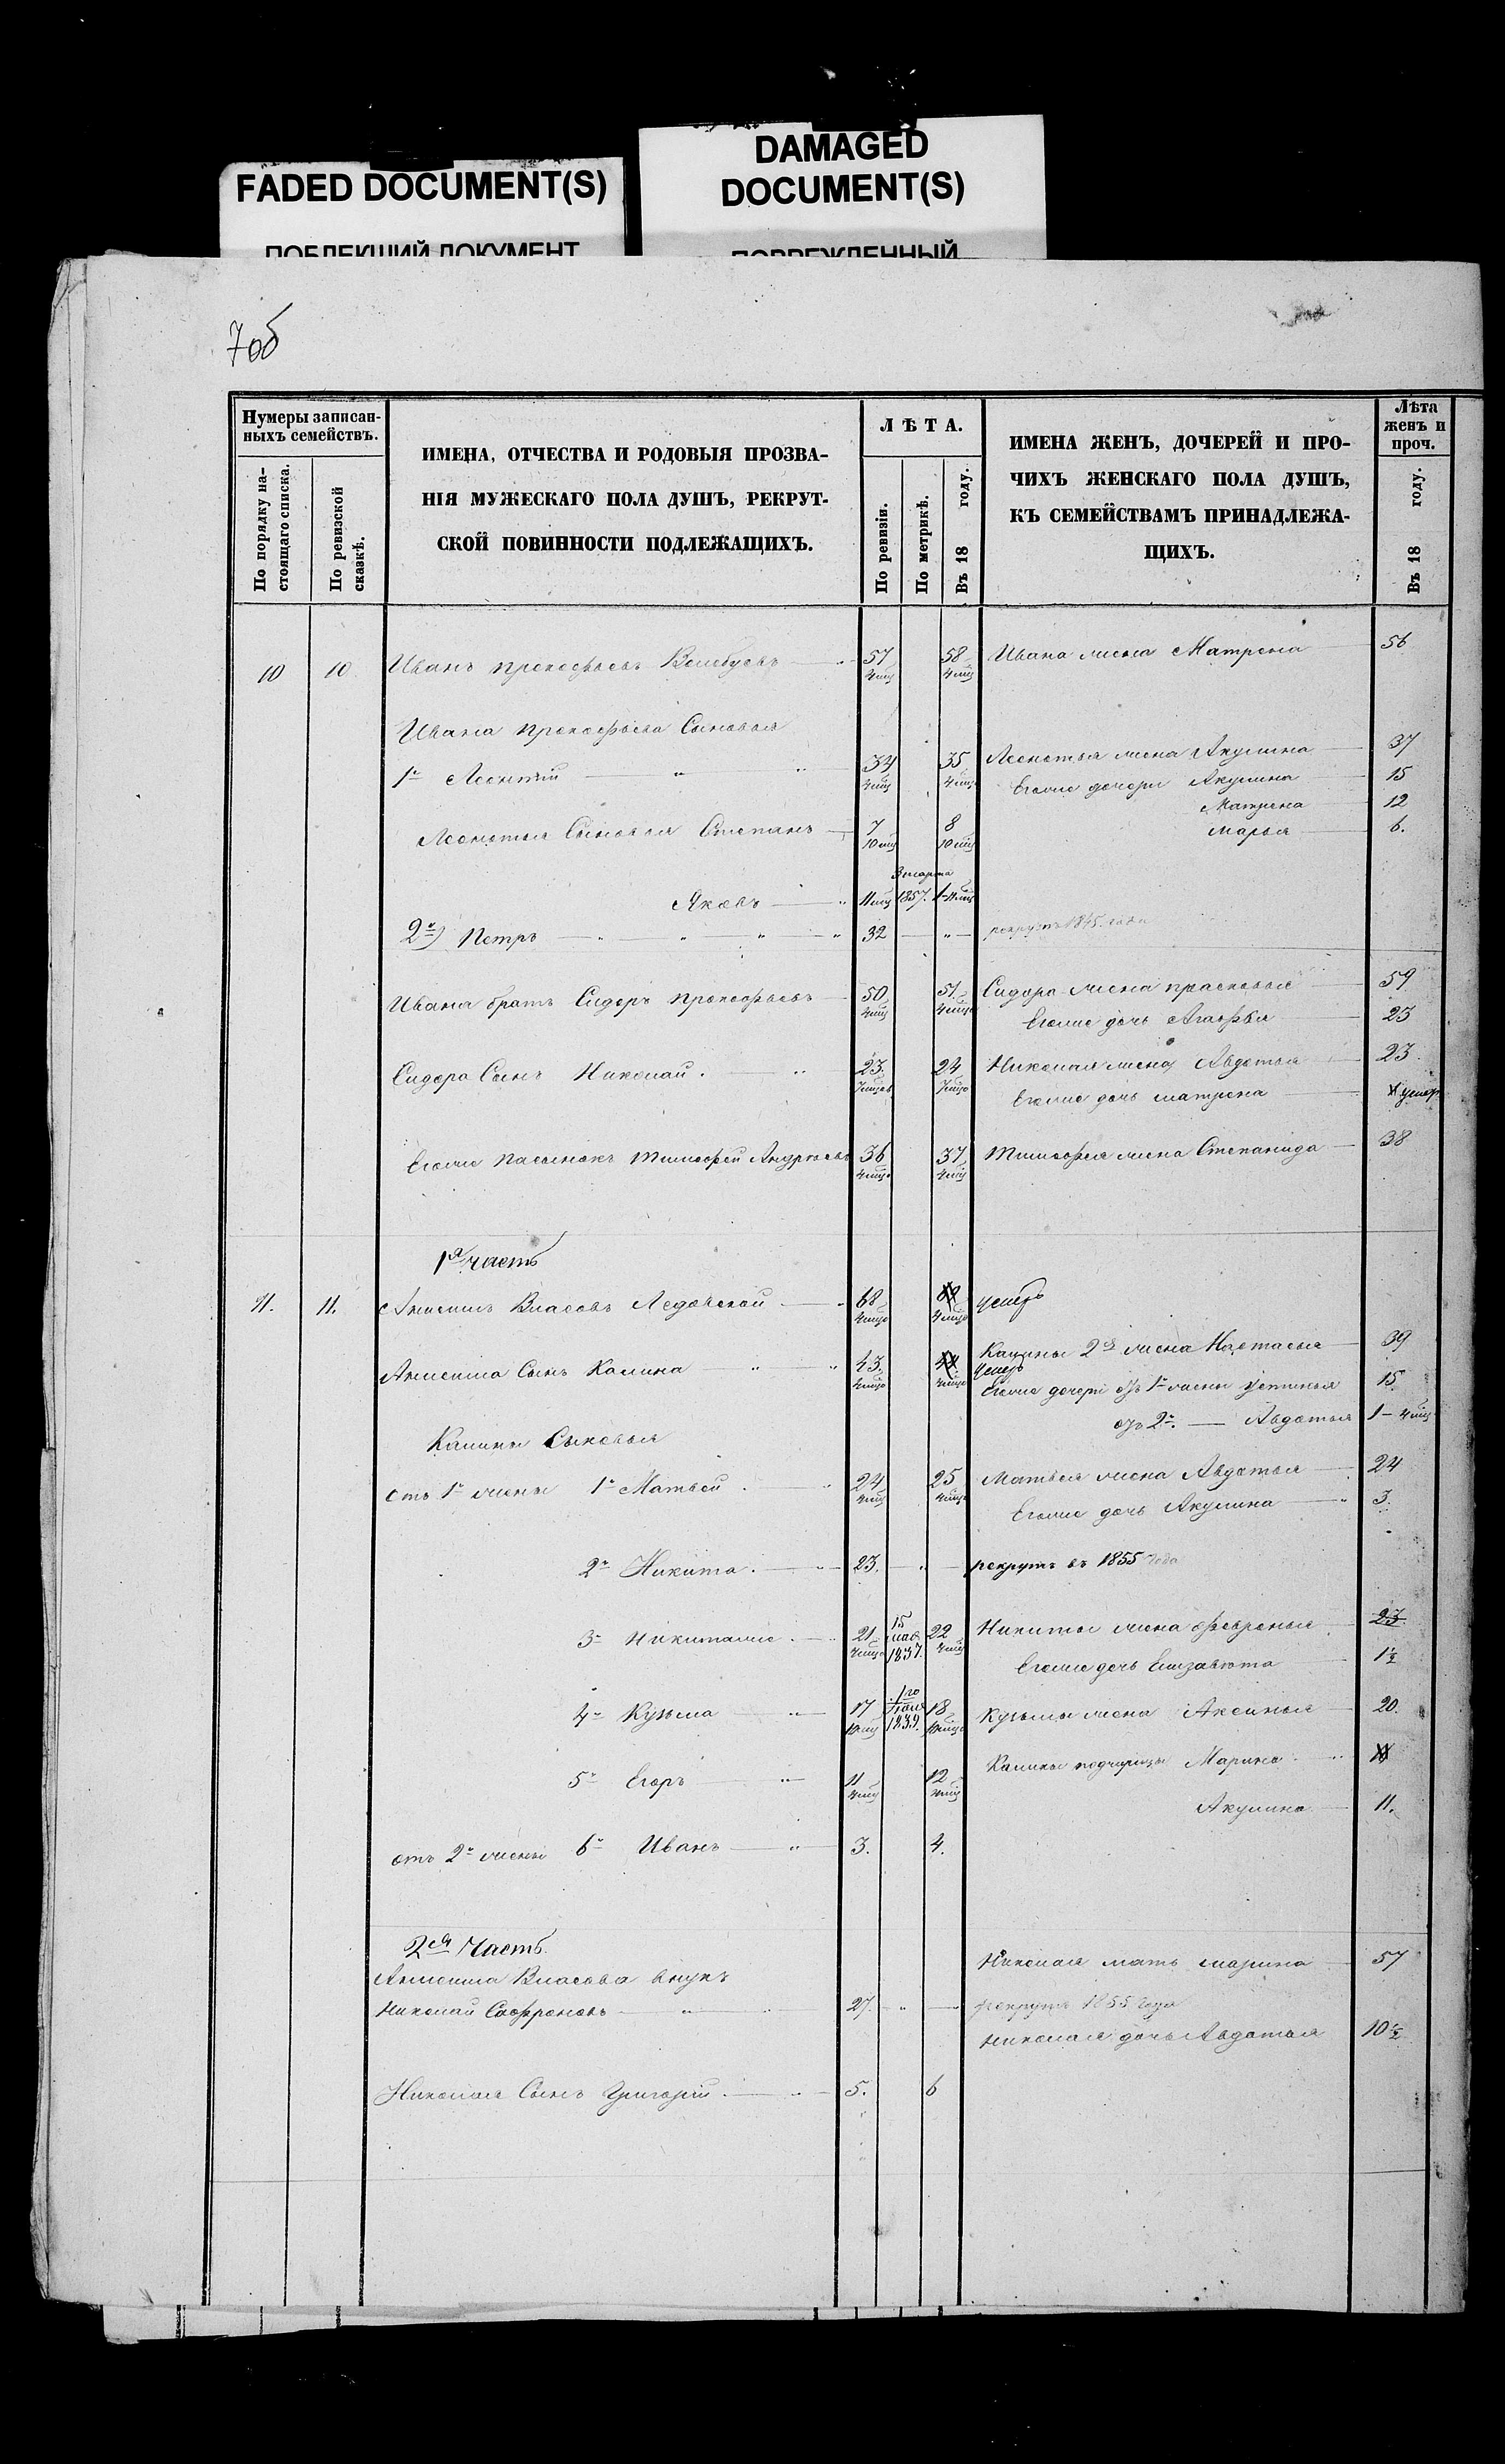 FADED DOCUMENT(S)
ПОБЛЕКШИЙ ДОКУМЕНТ
DAMAGED
DOCUMENT(S)
ПОВРЕЖДЕННЫЙ
7об
Нумеры записан-
ныхъ семействъ.
По порядку на-
стоящаго списка.
По ревизской
сказкѣ.
ИМЕНА, ОТЧЕСТВА И РОДОВЫЯ ПРОЗВА-
НІЯ МУЖЕСКАГО ПОЛА ДУШЪ, РЕКРУТ-
СКОЙ ПОВИННОСТИ ПОДЛЕЖАЩИХЪ.
ЛѢТА.
По ревизіи.
По метрикѣ.
Въ 18 году.
ИМЕНА ЖЕНЪ, ДОЧЕРЕЙ И ПРО-
ЧИХЪ ЖЕНСКАГО ПОЛА ДУШЪ,
КЪ СЕМЕЙСТВАМЪ ПРИНАДЛЕЖА-
ЩИХЪ.
Лѣта
женъ и
проч.
Въ 18 году.
10 10 Иванъ Прокофьевъ 57 58 Ивана жена Матрена 56
Ивана Прокофьева Сыновья
1й Леонтій 34 35 Леонтья жена Акулина 37
Егоже дочери Акулина 15
Матрена 12
Леонтья Сыновья Степанъ 7 8 Марья 6.
10 мц 10 мц
3 марта
Яковъ 11 мц 1857.
2й) Петръ 32 рекрутъ 1845 года
Ивана братъ Сидоръ Прокофьевъ 50 51 Сидора жена Прасковья 59
Егоже дочь Агафья 23
Сидора Сынъ Николай. 23. 24 Николая жена Авдотья 23.
Егоже дочь Матрена умер.
Егоже пасынокъ Тимофей Андреевъ 36 37 Тимофея жена Степанида 38
1я часть
11. 11. Анисимъ Власовъ 68 умеръ
Анисима Сынъ Калина 43. умеръ Калины 2я жена Настасья 39
Егоже дочери отъ 1й жены Устинья 15.
отъ 2й. Авдотья 1
Калины Сыновья
отъ 1й жены 1й Матвей 24 25 Матвея жена Авдотья 24
Егоже дочь Акулина 3.
2й Никита. 23. рекрутъ въ 1855 года
3й Никитаже. 21 15 мая 1837. 22 Никиты жена Февронья 23
Егоже дочь Елизавета 1½
4й Кузьма 17 1го 1839. 18 Кузьмы жена Аксинья 20.
5й Егоръ 11 12 Калины подчерицы Марина
Акулина 11.
отъ 2й жены 6й Иванъ 3. 4.
2я Часть.
Анисима Власова внукъ Николая мать Марина 57
Николай Сафроновъ 27. рекрутъ 1855 года
Николая дочь Авдотья 10½
Николая Сынъ Григорій. 5. 6